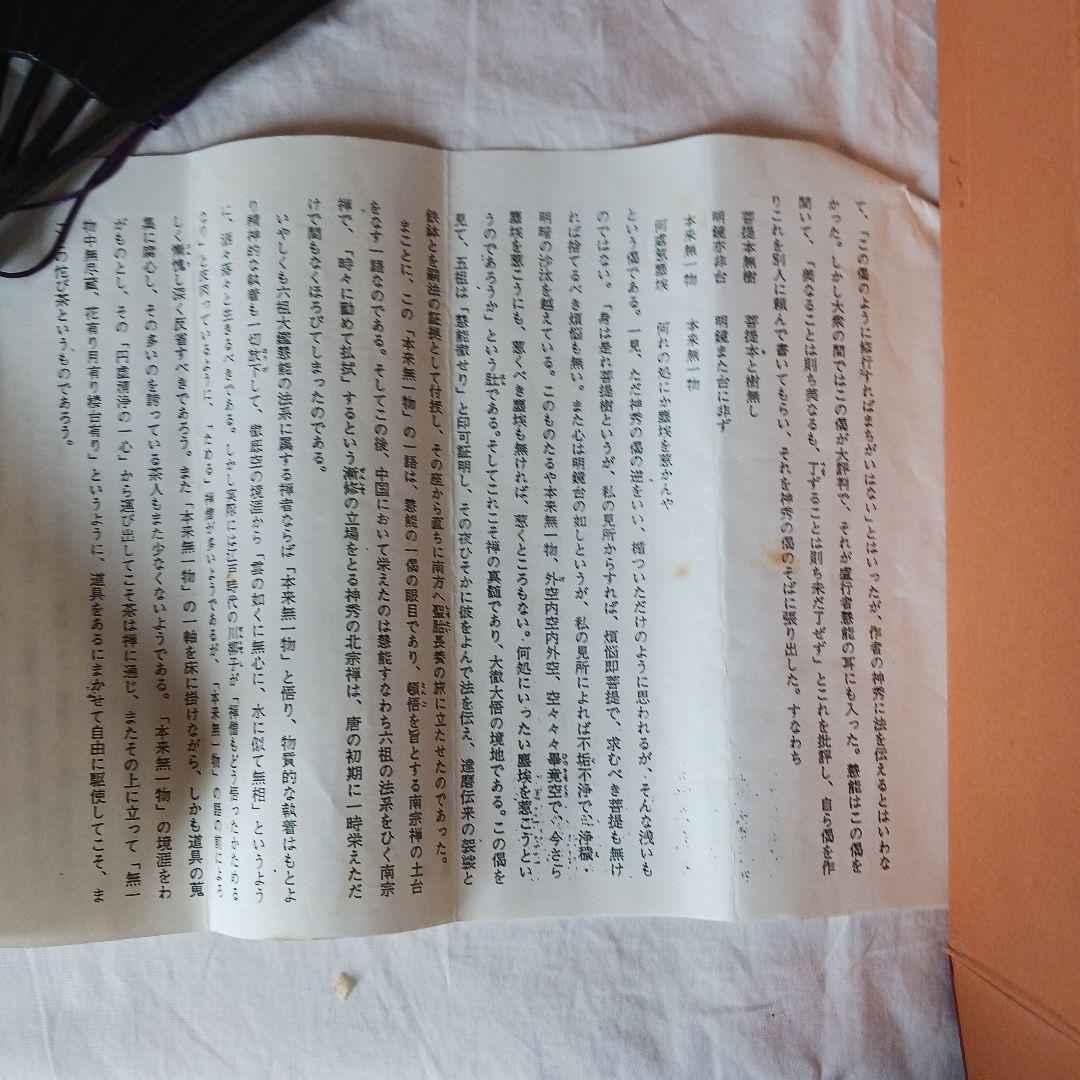 て、「この偈のように修行すればまちがいはない」とはいったが、作者の神秀に法を伝えるとはいわな
かった。しかし大衆の間ではこの偈が大評判で、それが盧行者慧能の耳にも入った。慧能はこの偈を
聞いて、「美なることは則ち美なるも、了ずることは則ち未だ了ぜず」とこれを批評し、自ら偈を作
りこれを別人に頼んで書いてもらい、それを神秀の偈のそばに張り出した。すなわち
菩提本無樹　菩提本と樹無し
明鏡亦非台　明鏡また台に非ず
本来無一物　本来無一物
何処惹塵埃　何れの処にか塵埃を惹かんや
という偈である。一見、ただ神秀の偈の逆をいい、楯ついただけのように思われるが、そんな浅いも
のではない。「身は是れ菩提樹というが、私の見所からすれば、煩悩即菩提で、求むべき菩提も無け
れば捨てるべき煩悩も無い。また心は明鏡台の如しというが、私の見所によれば不垢不浄で、浄穢・
明暗の沙汰を越えている。このものたるや本来無一物、外空内空内外空、空々々畢竟空で、今さら
塵埃を惹こうにも、惹くべき塵埃も無ければ、惹くところもない。何処にいったい塵埃を惹こうとい
うのであろうか」という趣である。そしてこれこそ禅の真髄であり、大徹大悟の境地である。この偈を
見て、五祖は「慧能徹せり」と印可証明し、その夜ひそかに彼をよんで法を伝え、達磨伝来の袈裟と
鉄鉢とを嗣法の証拠として付授し、その座から直ちに南方へ聖胎長養の旅に立たせたのであった。
まことに、この「本来無一物」の一語は、慧能の一偈の眼目であり、頓悟を旨とする南宗禅の土台
をなす一語なのである。そしてこの後、中国において栄えたのは慧能すなわち六祖の法系をひく南宗
禅で、「時々に勤めて払拭」するという漸修の立場をとる神秀の北宗禅は、唐の初期に一時栄えただ
けで間もなくほろびてしまったのである。
いやしくも六祖大鑑慧能の法系に属する禅者ならば「本来無一物」と悟り、物質的な執着はもとよ
り精神的な執着も一切放下して、徹底空の境涯から「雲の如くに無心に、水に似て無相」というよう
に、洒々落々と生きるべきである。しかし実際には江戸時代の川柳子が「禅僧もどう悟ったかためる
なり」と皮肉っているように、「ためる」禅僧が多いようである。「本来無一物」の語の前によろ
しく慚愧し深く反省すべきであろう。また「本来無一物」の一軸を床に掛けながら、しかも道具の蒐
集に腐心し、その多いのを誇っている茶人もまた少なくないようである。「本来無一物」の境涯をわ
がものとし、その「円虚清浄の一心」から運び出してこそ茶は禅に通じ、またその上に立って「無一
物中無尽蔵、花有り月有り楼台有り」というように、道具をあるにまかせて自由に駆使してこそ、ま
ことの侘び茶というものであろう。